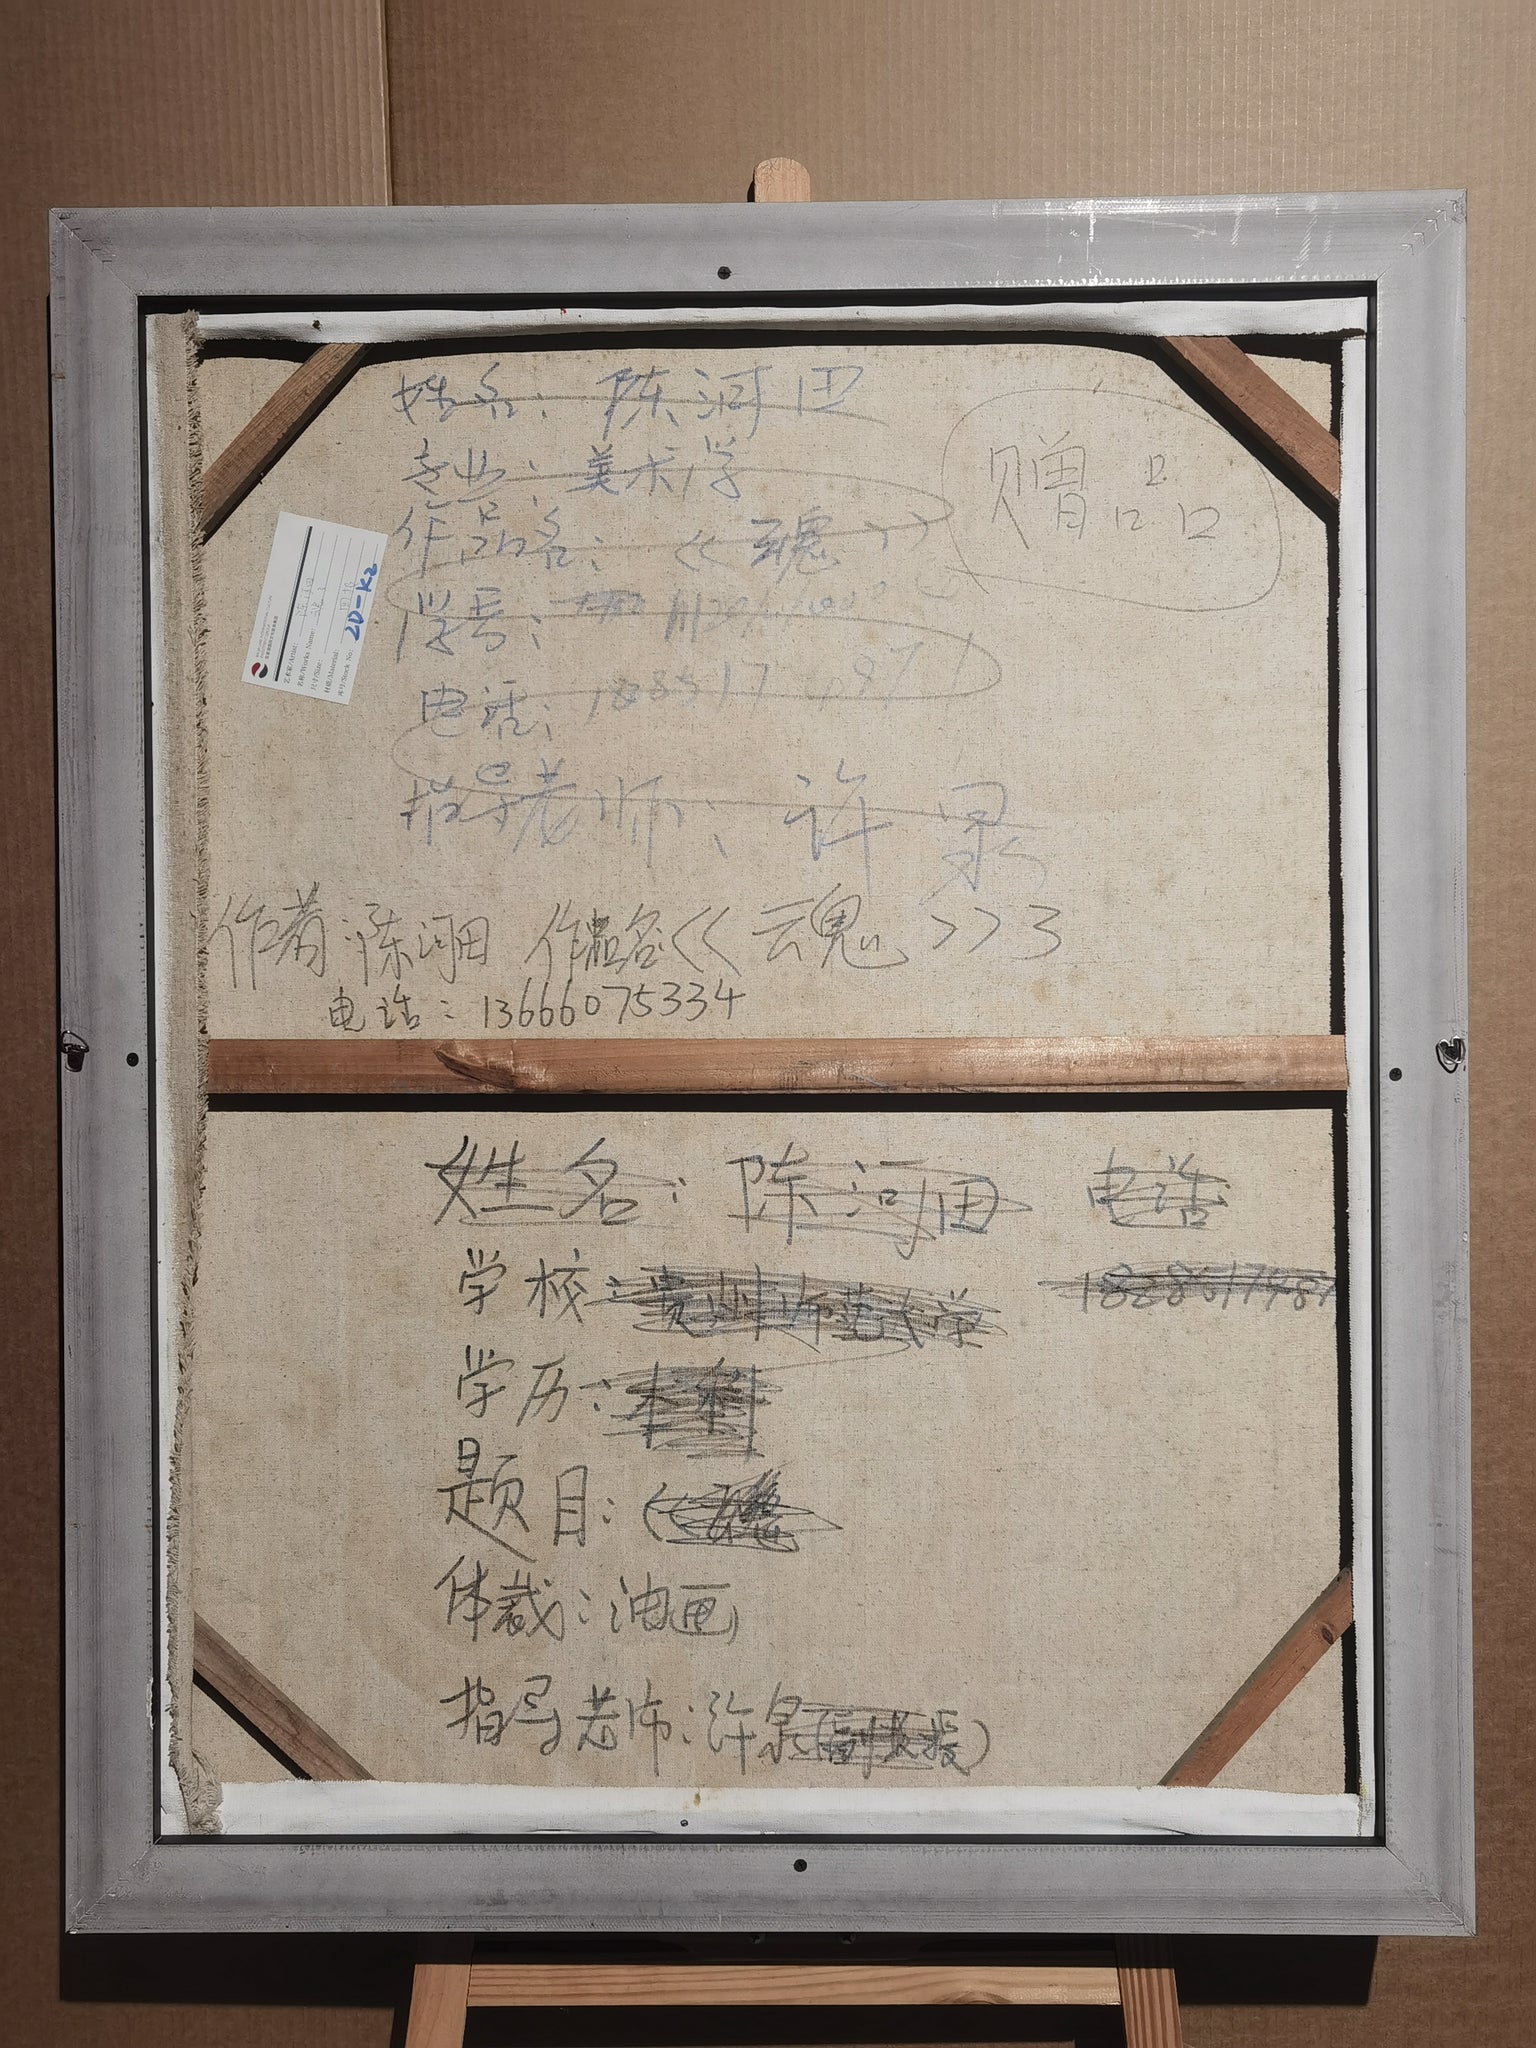 姓名：陈河田
专业：美术学
作品名：《魂》
赠品
学号：
电话：
指导老师：许泉
艺术家/Artist:
名称/Works Name:
尺寸/Size:
材质/Material:
库号/Stock No: 2D-K2
作者：陈河田 作品名《魂》3
电话：13666075334
姓名：陈河田 电话
学校：贵州师范大学
学历：本科
题目：《魂
体裁：油画
指导老师：许泉（副教授）